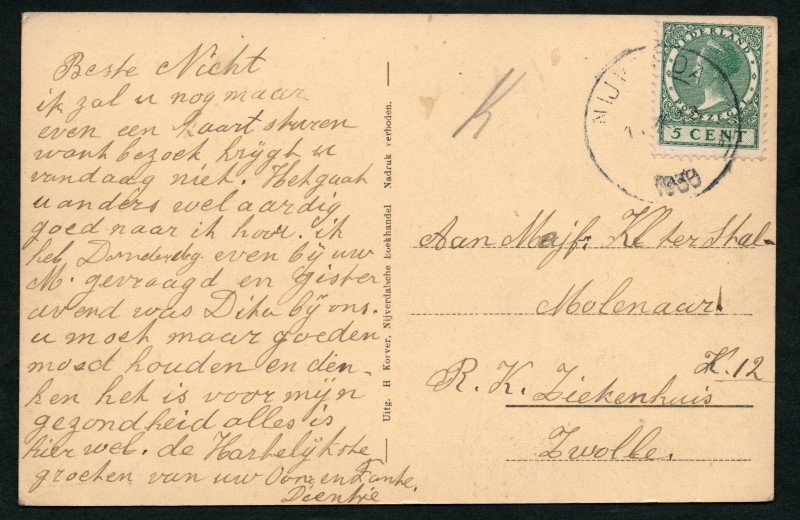 Beste Nicht
ik zal u nog maar
even een kaart sturen
want bezoek krijgt u
vandaag niet. Het gaat
u anders wel aardig
goed naar ik hoor. ik
heb Donderdag even bij uw
M. gevraagd en gister
avond was Dika bij ons.
u moet maar goeden
moed houden en den-
ken het is voor mijn
gezondheid alles is
hier wel. de Hartelijkste
groeten van uw Oom en Tante.
Dientje
Uitg. H Korver, Nijverdalsche Boekhandel Nadruk verboden.
K
NEDERLAND
POSTZEGEL
5 CENT
Aan Mejf. Kl ter Stal-
Molenaar
K. 12
R. K. Ziekenhuis
Zwolle.